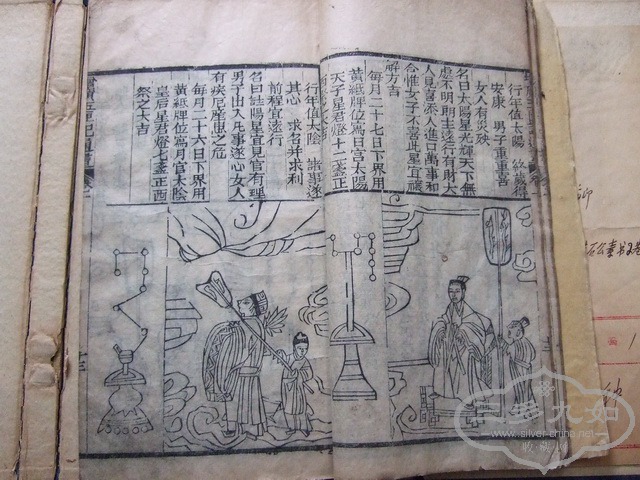 行年值太陽 終歲得
安康 男子重重喜
女人有災殃
名曰太陽星光輝天下無
處不明朗主遂行有財大
人見喜添人進口萬事和
合惟女子不喜此星宜禳
解方吉
每月二十七日下界用
黃紙牌位寫日宮太陽
天子星君燈十二盞正
行年值太陰 諸事遂
其心 求名并求利
前程宜遂行
名曰 陽星宜見官有理
男子出入凡事遂心女人
有疾厄產 之危
每月二十六日下界用
黃紙牌位寫月宮太陰
皇后星君燈七盞正西
祭之大吉
三多九如
www.silver-chine.net